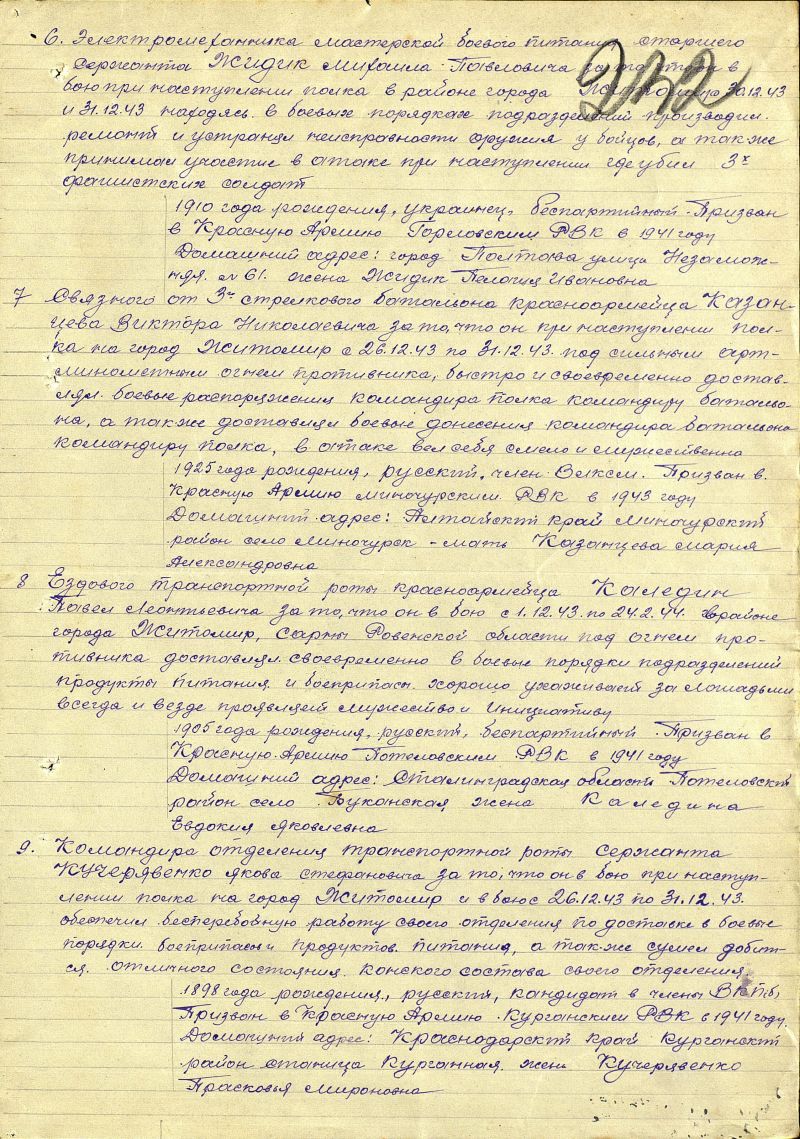 6. Электромеханика мастерской боевого питания старшего
сержанта Жидик Михаила Павловича за то, что он в
бою при наступлении полка в районе города 30.12.43
242
и 31.12.43 находясь в боевых порядках подразделений производил
ремонт и устранял неисправности оружия у бойцов, а также
принимал участие в атаке при наступлении где убил 3х
фашистских солдат
1910 года рождения, украинец, беспартийный. Призван
в Красную Армию Горловским РВК в 1941 году
Домашний адрес: город Полтава улица Незамож-
няя. № 61. жена Жидик Пелагия Ивановна
7 Связного от 3го стрелкового батальона красноармейца Казан-
цева Виктора Николаевича за то, что он при наступлении пол-
ка на город Житомир с 26.12.43 по 31.12.43. под сильным арт-
минометным огнем противника, быстро и своевременно достав-
лял боевые распоряжения командира полка командиру батальо-
на, а также доставлял боевые донесения командира батальона
командиру полка, в атаке вел себя смело и мужественно
1925 года рождения, русский, член ВЛКСМ. Призван в
Красную Армию Миночурским РВК в 1943 году
Домашний адрес: Алтайский край Миночурский
район село Миночурск - мать Казанцева Мария
Александровна
8 Ездового транспортной роты красноармейца Каледин
Павел Леонтьевича за то, что он в бою с 1.12.43. по 24.2.44. в районе
города Житомир, Сарны Ровенской области под огнем про-
тивника доставлял своевременно в боевые порядки подразделений
продукты питания и боеприпасы. хорошо ухаживает за лошадьми
всегда и везде проявляет мужество и инициативу
1905 года рождения, русский, беспартийный. Призван в
Красную Армию Потеловским РВК в 1941 году
Домашний адрес: Сталинградская область Потеловский
район село Буканская жена Каледина
Евдокия Яковлевна
9. Командира отделения транспортной роты сержанта
Кучерявенко Якова Стефановича за то, что он в бою при наступ-
лении полка на город Житомир и в бою с 26.12.43 по 31.12.43.
обеспечил бесперебойную работу своего отделения по доставке в боевые
порядки боеприпасы и продуктов питания, а также сумел добить-
ся отличного состояния конского состава своего отделения.
1898 года рождения, русский, кандидат в члены ВКП(б)
Призван в Красную Армию Курганским РВК в 1941 году.
Домашний адрес: Краснодарский край Курганский
район станица Курганная жена Кучерявенко
Прасковья Мироновна